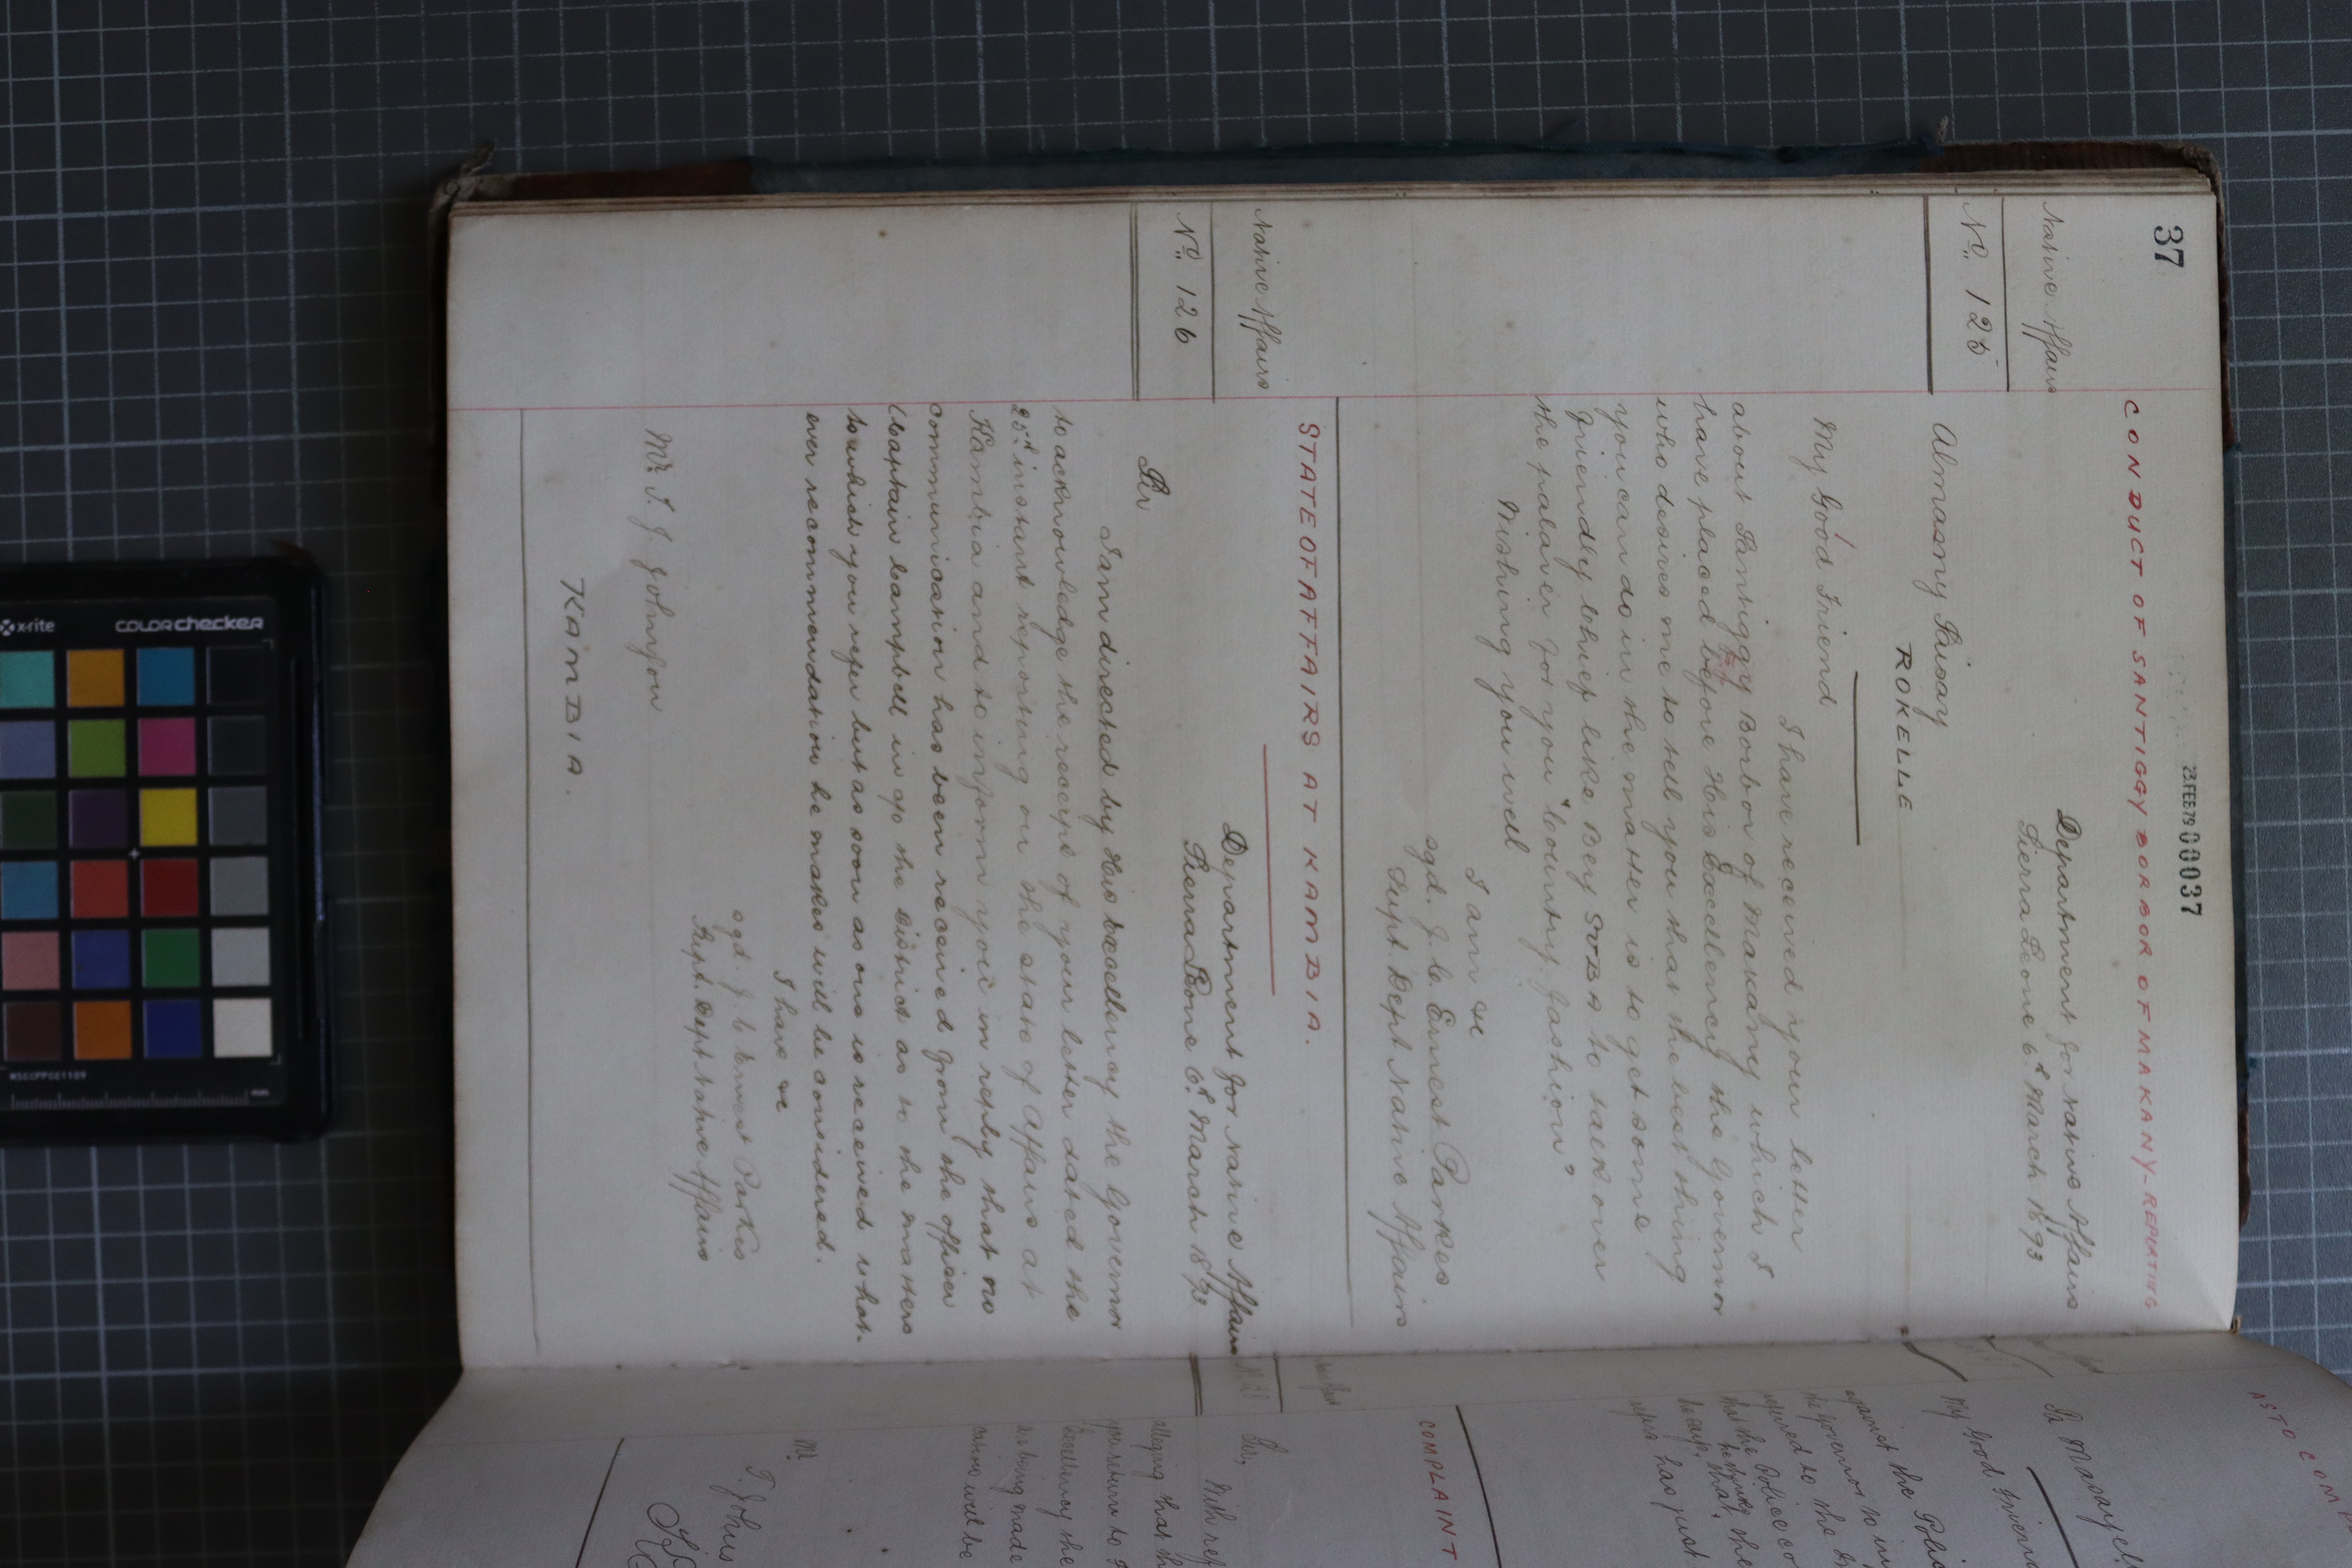 37
23 FEB 79 00037
CONDUCT OF SANTIGGY BORBOR OF MAKANY-REPORTING
Native Affairs
Nº 125
Department for Native Affairs
Sierra Leone 6th March 1893
Almamy Saisay
ROKELLE
My Good Friend
I have received your letter
about Santiggy Borbor of Makany which I
have placed before His Excellency the Governor
who desires me to tell you that the best thing
you can do in the matter is to get some
friendly Chief like Bey SOBA to talk over
the palaver for you "Country fashion"
Wishing you well
I am &c
sgd. J. C. Ernest Parkes
Supt. Dept Native Affairs
STATE OF AFFAIRS AT KAMBIA.
Native Affairs
Nº 126
Department for Native Affairs
Sierra Leone 6th March 1893
Sir
I am directed by His Excellency the Governor
to acknowledge the receipt of your letter dated the
25th instant reporting on the state of affairs at
Kambia and to inform you in reply that no
communication has been received from the officer
Captain Campbell in of the District as to the matters
to which you refer but as soon as one is received what-
ever recommendation he makes will be considered.
I have &c
sgd. J. C. Ernest Parkes
Supt. Dept Native Affairs
Mr. T. J. Johnson
KAMBIA.
AS TO COM
My Good Friend
against the Polic
the Governor to
referred to the
the Police
has just
COMPLAINT
Sir,
With ref
alleging that th
you return to
Excellency the
is being made
will be
Mr.
T. Johns
x-rite
COLORchecker
MSCCPPCC1109
mm